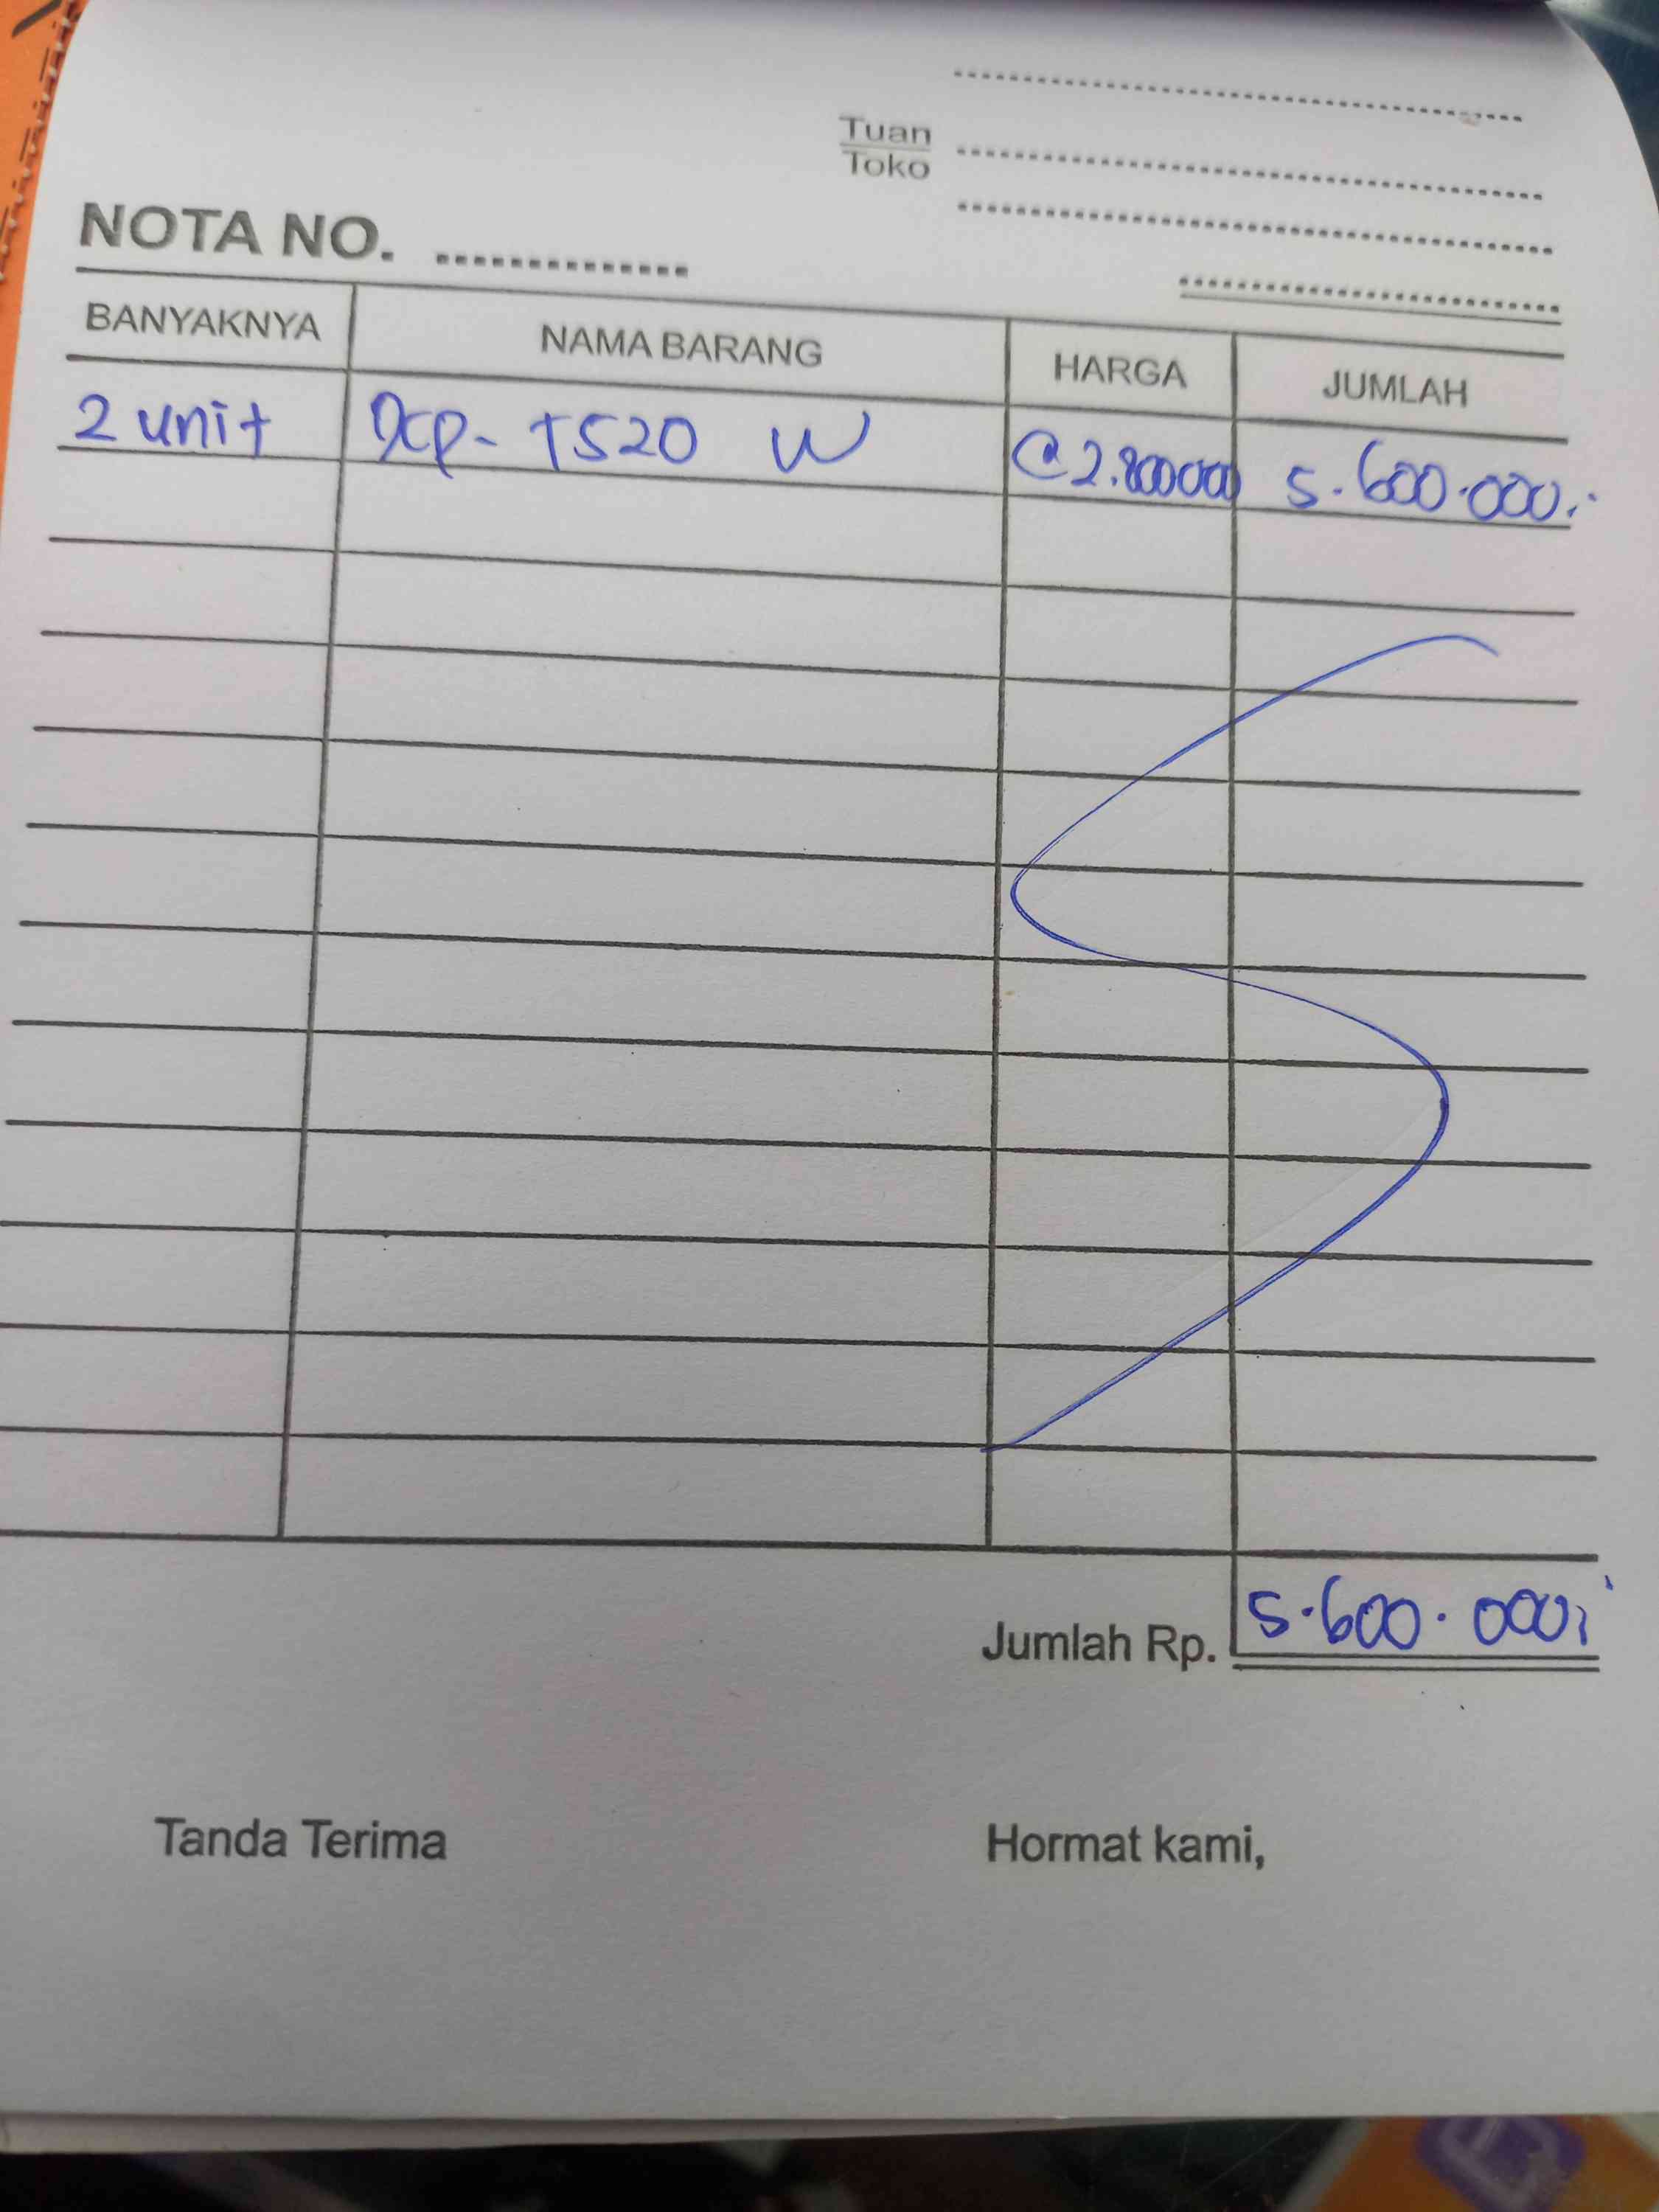 Tuan
Toko
NOTA NO.
BANYAKNYA NAMA BARANG HARGA JUMLAH
2 unit DCP- T520 W @ 2.800000 5.600.000,-
Jumlah Rp. 5.600.000,-
Tanda Terima Hormat kami,